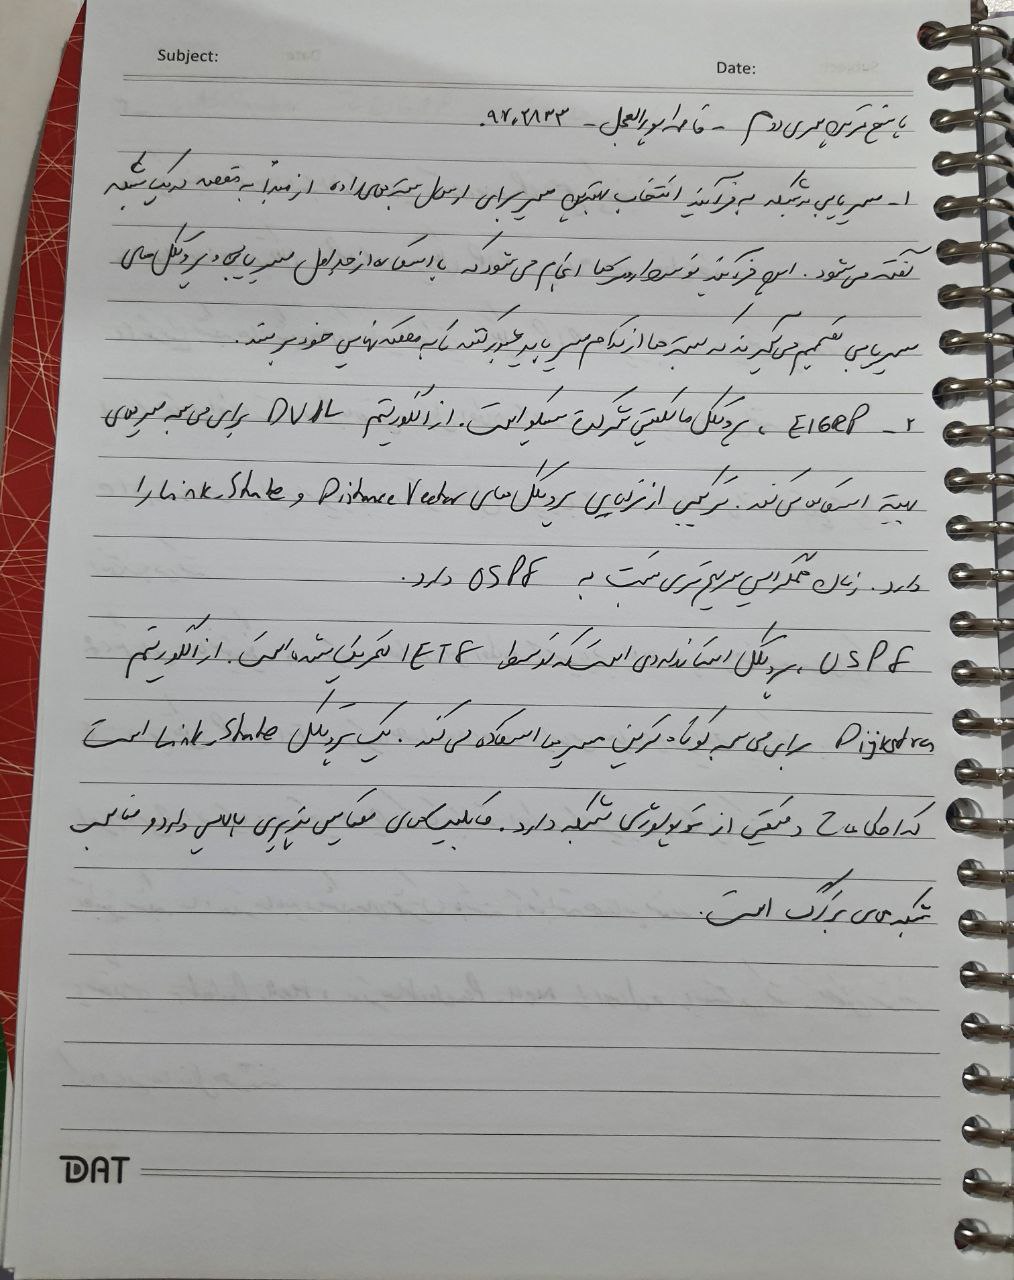 Subject:
Date:
پاسخ تمرین سری دوم - فاطمه ابوالعجل - 9702833
1- مسیریابی در شبکه به فرآیند انتخاب بهترین مسیر برای ارسال بسته‌های داده از مبدأ به مقصد در یک شبکه
گفته می‌شود. این فرآیند توسط روترها انجام می‌شود که با استفاده از جداول مسیریابی و پروتکل‌های
مسیریابی تصمیم می‌گیرند که بسته‌ها از کدام مسیر باید عبور کنند تا به مقصد نهایی خود برسند.
2- EIGRP ، پروتکل مالکیتی شرکت سیسکو است. از الگوریتم DUAL برای محاسبه مسیرهای
بهینه استفاده می‌کند. ترکیبی از مزایای پروتکل‌های Distance Vector و Link-State را
دارد. زمان همگرایی سریع‌تری نسبت به OSPF دارد.
OSPF ، پروتکل استانداردی است که توسط IETF تعریف شده است. از الگوریتم
Dijkstra برای محاسبه کوتاه‌ترین مسیرها استفاده می‌کند. یک پروتکل Link-State است
که اطلاعات دقیقی از توپولوژی شبکه دارد. قابلیت‌های مقیاس پذیری بالایی دارد و مناسب
شبکه‌های بزرگ است.
DAT